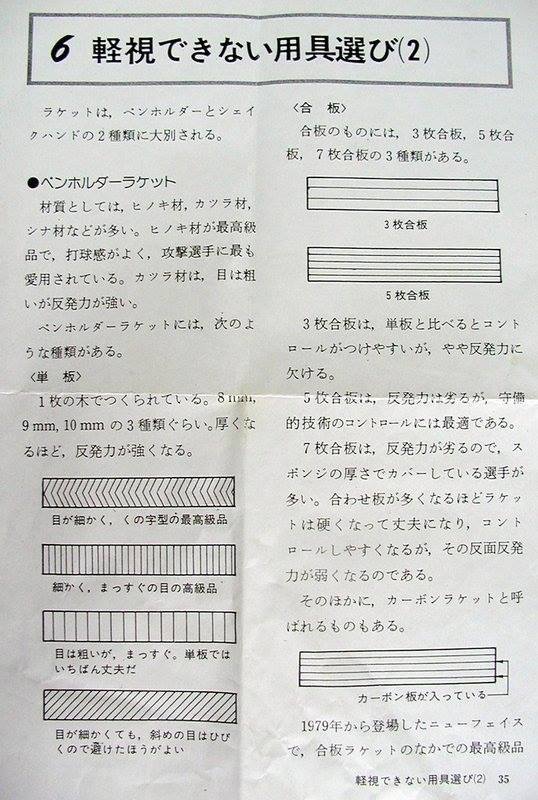 6 軽視できない用具選び(2)
ラケットは，ペンホルダーとシェイ
クハンドの2種類に大別される。
●ペンホルダーラケット
材質としては，ヒノキ材，カツラ材，
シナ材などが多い。ヒノキ材が最高級
品で，打球感がよく，攻撃選手に最も
愛用されている。カツラ材は，目は粗
いが反発力が強い。
ペンホルダーラケットには，次のよ
うな種類がある。
〈単 板〉
1枚の木でつくられている。8mm,
9mm, 10mmの3種類ぐらい。厚くな
るほど，反発力が強くなる。
目が細かく，くの字型の最高級品
細かく，まっすぐの目の高級品
目は粗いが，まっすぐ。単板では
いちばん丈夫だ
目が細かくても，斜めの目はひび
くので避けたほうがよい
〈合 板〉
合板のものには，3枚合板，5枚合
板，7枚合板の3種類がある。
3枚合板
5枚合板
3枚合板は，単板と比べるとコント
ロールがつけやすいが，やや反発力に
欠ける。
5枚合板は，反発力は劣るが，守備
的技術のコントロールには最適である。
7枚合板は，反発力が劣るので，ス
ポンジの厚さでカバーしている選手が
多い。合わせ板が多くなるほどラケッ
トは硬くなって丈夫になり，コント
ロールしやすくなるが，その反面反発
力が弱くなるのである。
そのほかに，カーボンラケットと呼
ばれるものもある。
カーボン板が入っている
1979年から登場したニューフェイス
で，合板ラケットのなかでの最高級品
軽視できない用具選び(2) 35